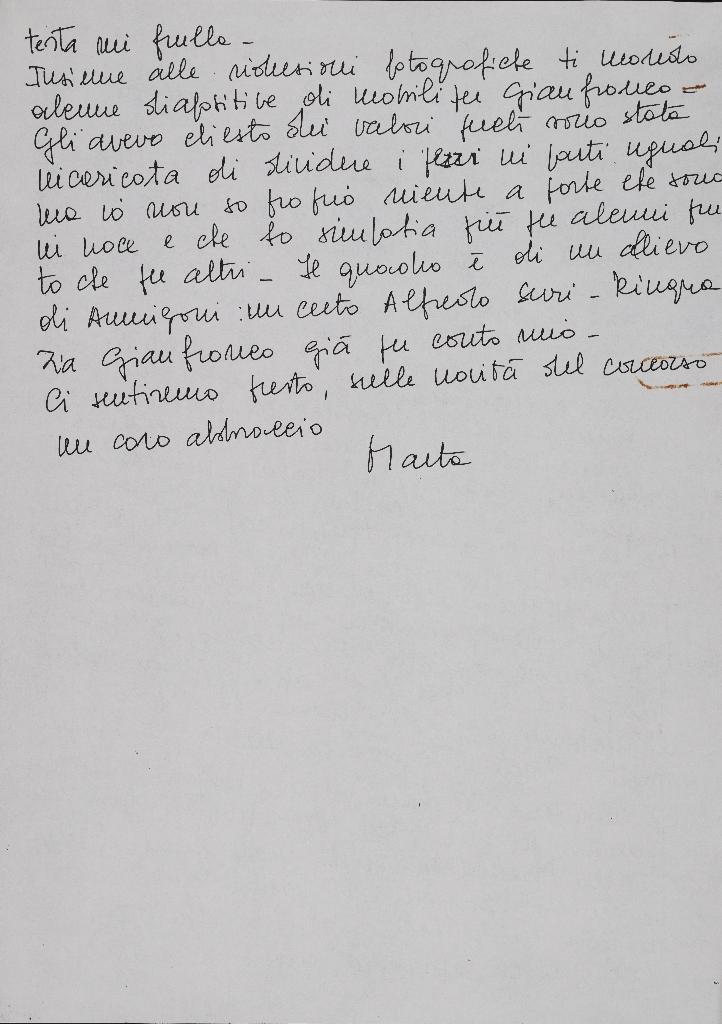 testa mi frulla -
Insieme alle riduzioni fotografiche ti mando
alcune diapositive di mobili per Gianfranco =
Gli avevo chiesto dei valori perché sono stata
incaricata di dividere i pezzi in parti uguali
ma io non so proprio niente a parte che sono
in noce e che ho simpatia più per alcuni piu
to che per altri - Il quadro è di un allievo
di Annigoni: un certo Alfredo Serri - Ringra
zia Gianfranco già per conto mio -
Ci sentiremo presto, sulle novità del concorso
un caro abbraccio
Marta